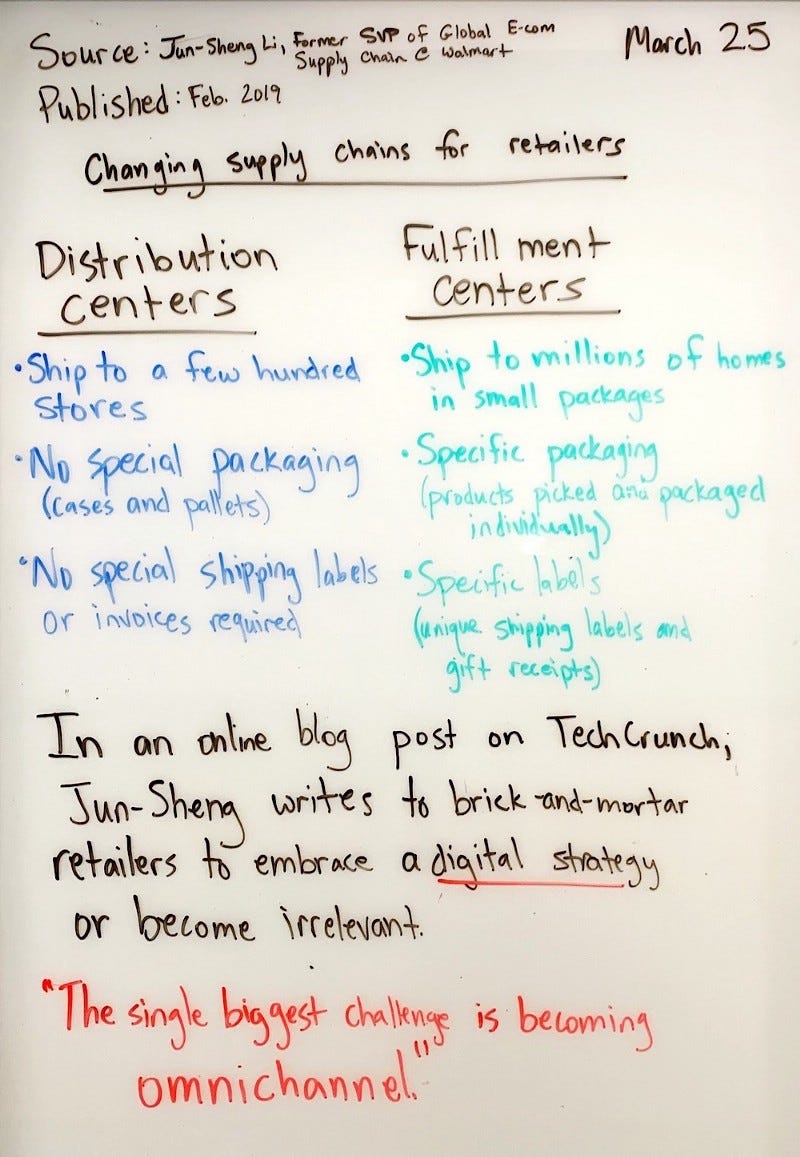 Source: Jun-Sheng Li, Former SVP of Global E-com
Supply Chain @ Walmart
March 25
Published: Feb. 2019
Changing supply chains for retailers
Distribution
centers
• Ship to a few hundred
stores
• No special packaging
(cases and pallets)
• No special shipping labels
or invoices required
Fulfill ment
centers
• Ship to millions of homes
in small packages
• Specific packaging
(products picked and packaged
individually)
• Specific labels
(unique shipping labels and
gift receipts)
In an online blog post on TechCrunch,
Jun-Sheng writes to brick-and-mortar
retailers to embrace a digital strategy
or become irrelevant.
"The single biggest challenge is becoming
omnichannel."